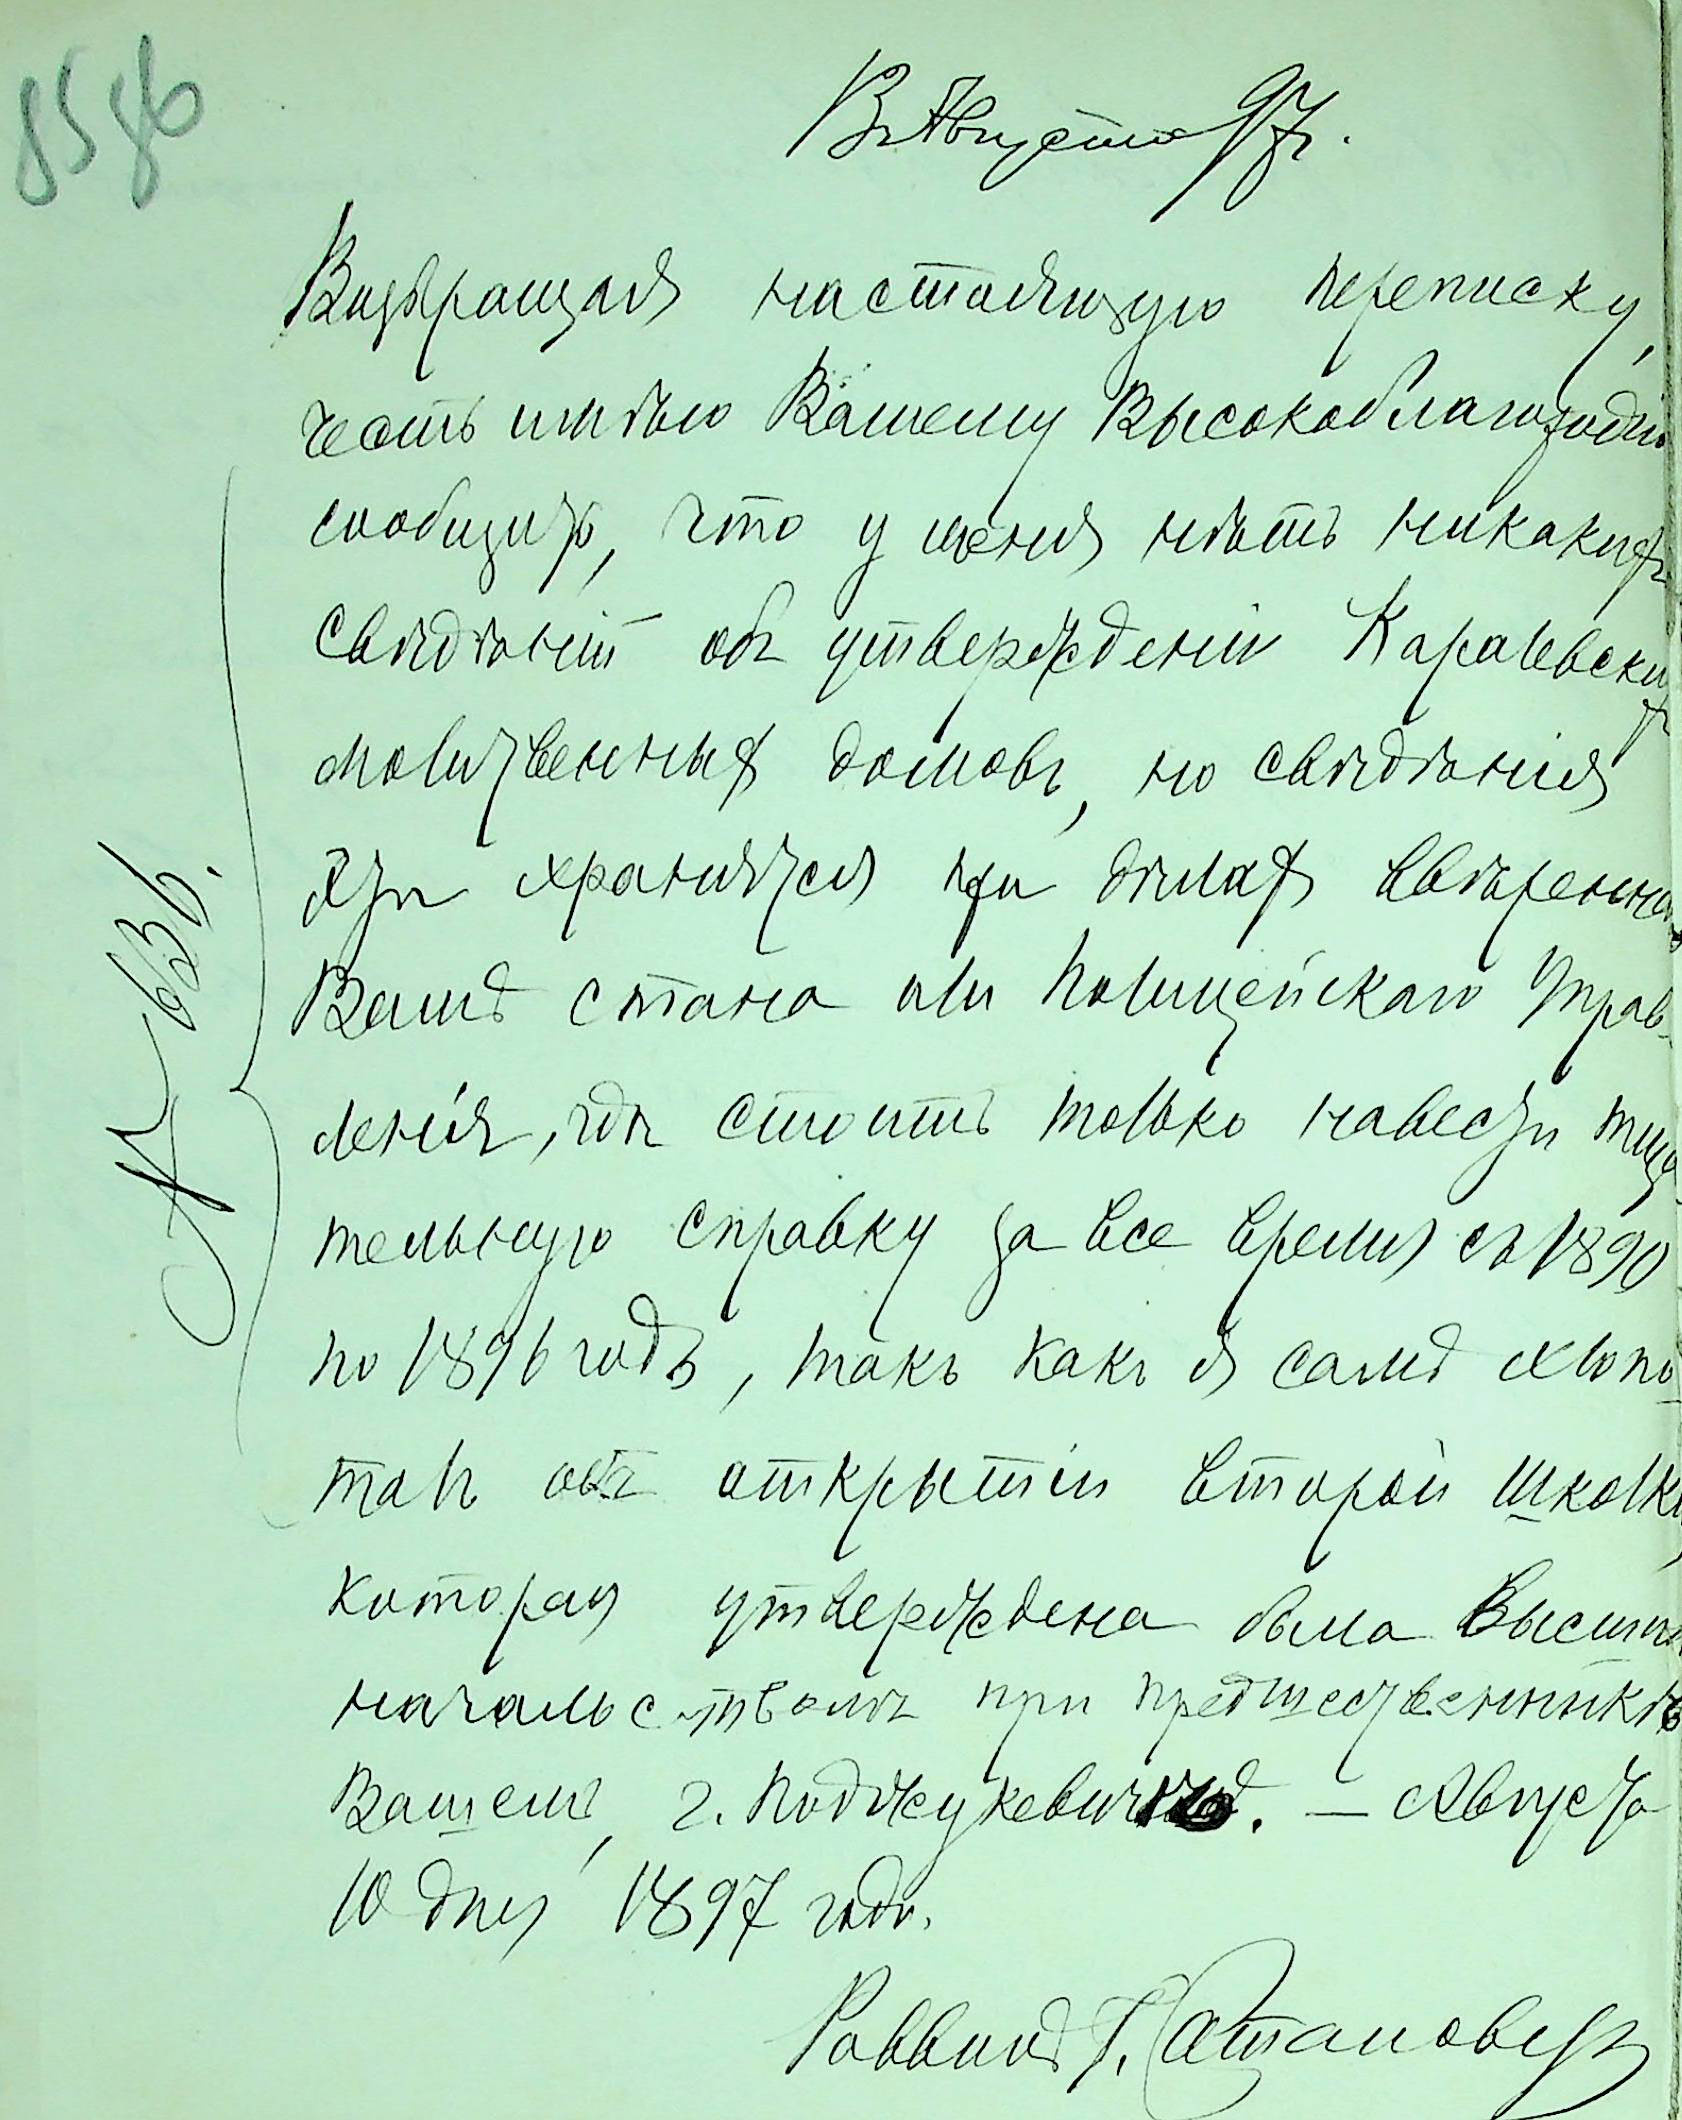 85 86
13 Августа 97 г.
Возвращая настоящую переписку,
честь имѣю Вашему Высокоблагородiю
сообщить, что у меня нѣтъ никакихъ
свѣдѣнiй объ утвержденiи Каралевскихъ
молитвенныхъ домовъ, но свѣдѣнiя
эти хранятся при дѣлахъ ввѣреннаго
Вамъ стана или Полицейскаго Управ-
ленiя, гдѣ стоитъ только навести тща
тельную справку за все время съ 1890
по 1896 годъ, такъ какъ я самъ хлопо-
талъ объ открытiи второй школы,
которая утверждена была Высшимъ
начальствомъ при предшественникѣ
Вашемъ, г. Поджукевичѣ. — Августа
10 дня 1897 года.
Раввинъ Г.
№ 636.